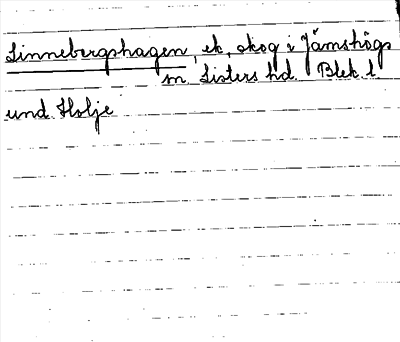 Linnebergshagen, ek. skog i Jämshögs
sn. Listers hd. Blek. l.
und. Holje